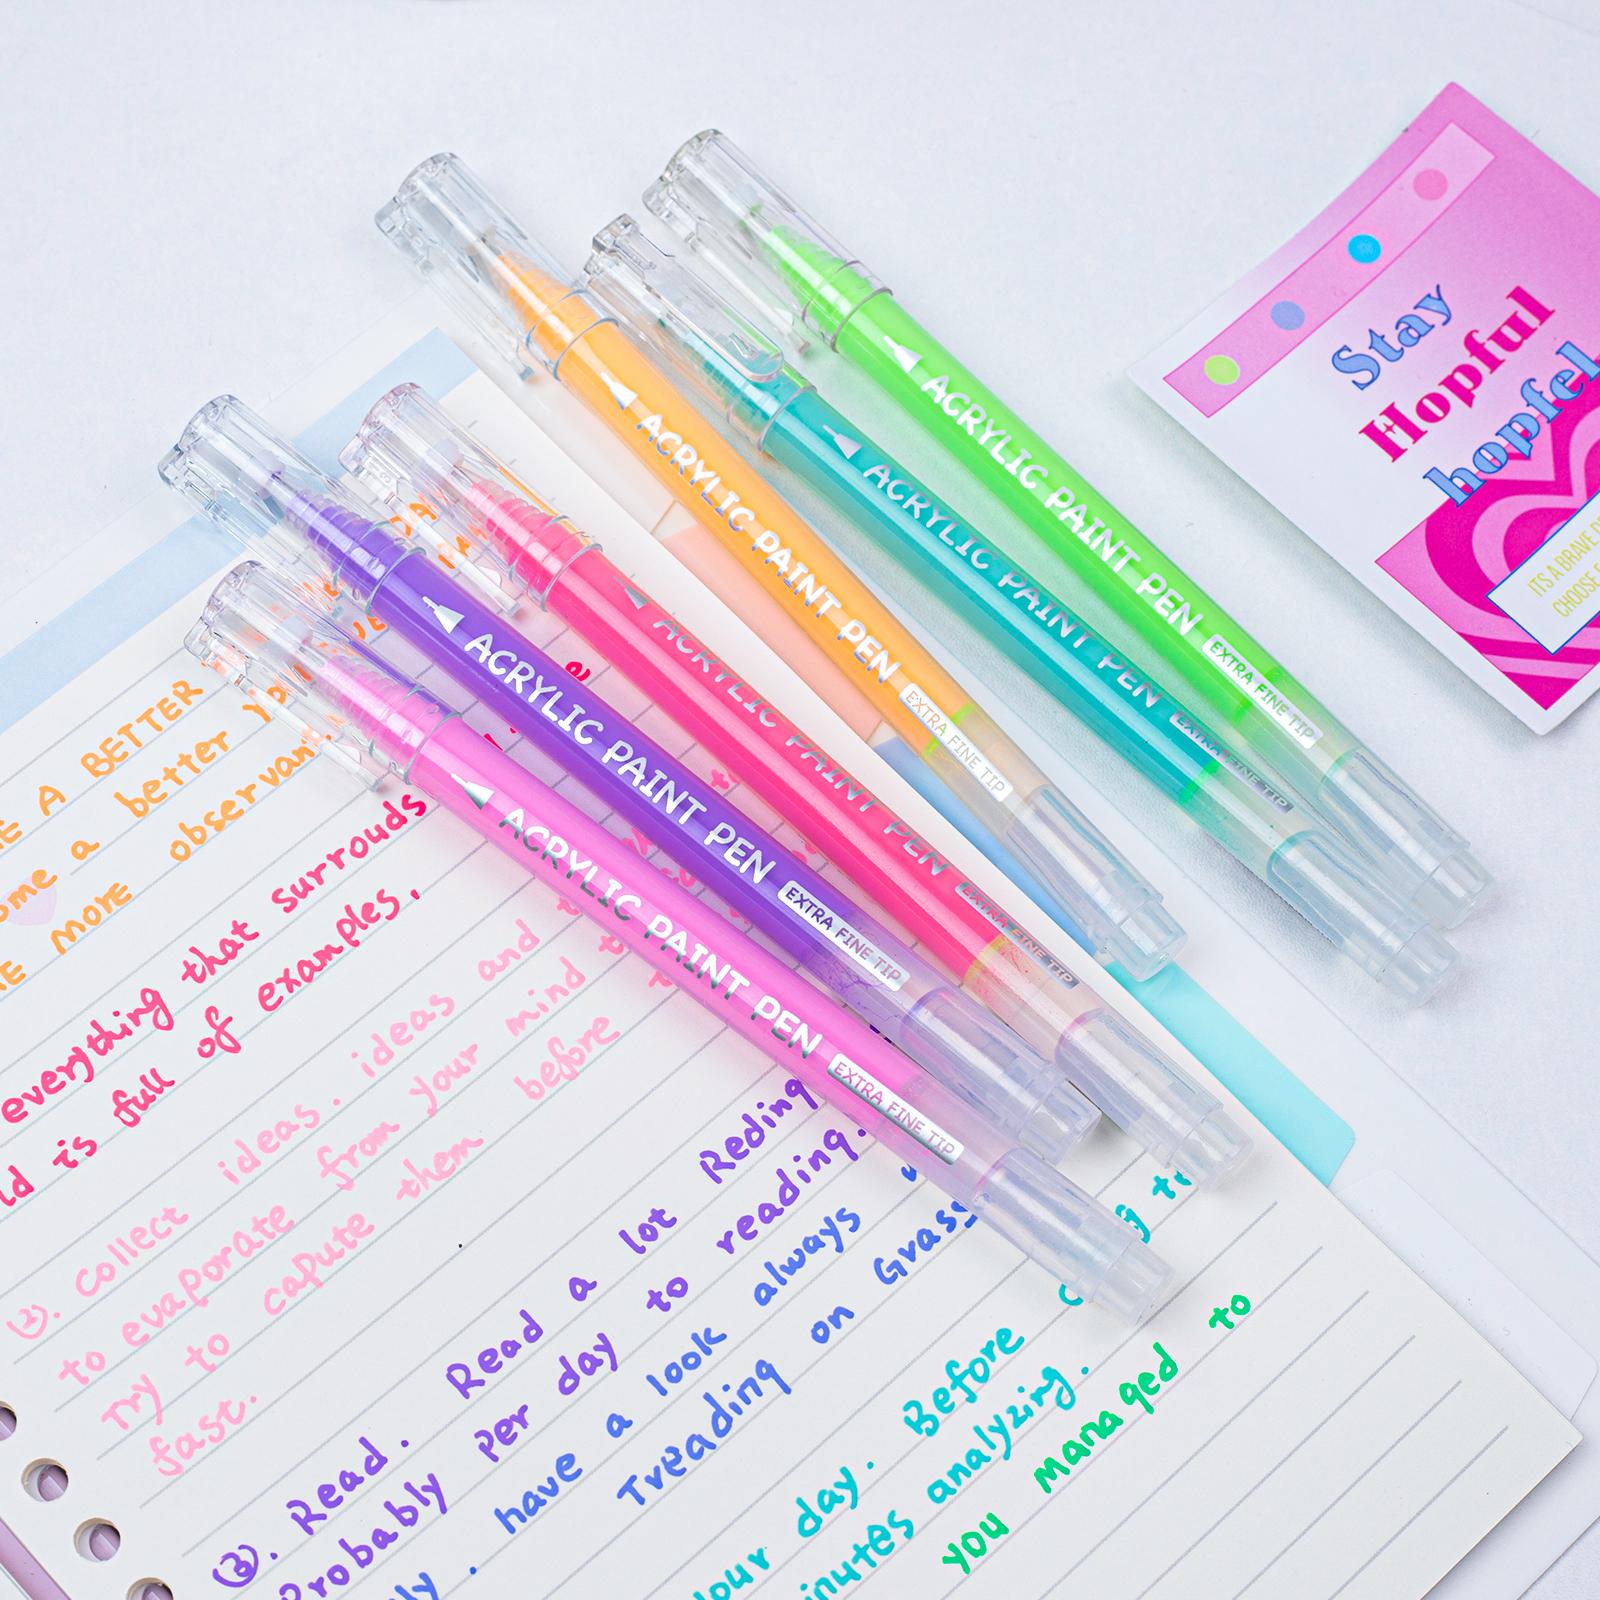 ACRYLIC PAINT PEN EXTRA FINE TIP
ACRYLIC PAINT PEN EXTRA FINE TIP
ACRYLIC PAINT PEN EXTRA FINE TIP
ACRYLIC PAINT PEN EXTRA FINE TIP
ACRYLIC PAINT PEN EXTRA FINE TIP
ACRYLIC PAINT PEN EXTRA FINE TIP
Stay
Hopful
hopfel
IT'S A BRAVE
CHOOSE
A BETTER
a better
MORE observant
everything that surrouds
is full of examples.
②. collect ideas. ideas and
to evaporate from your mind
Try to capute them before
fast.
③. Read. Read a lot Reding
Probably per day to reading.
have a look always
Treading on Grass
day. Before
analyzing.
you managed to